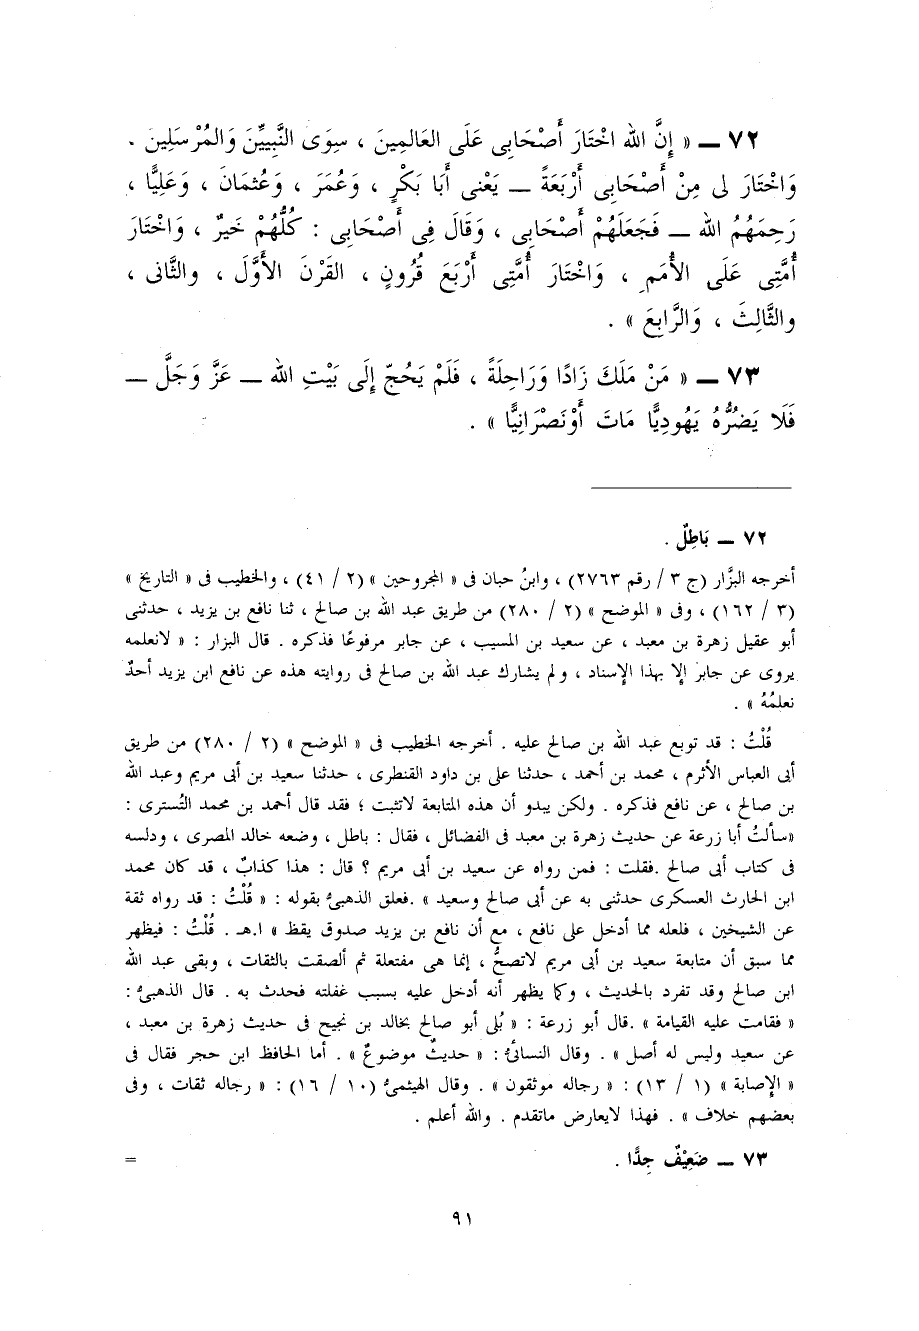 ٧٢ ــ « إِنَّ الله اخْتَارَ أَصْحَابِى عَلَى العَالمِينَ ، سِوَى النَّبِيِّينَ وَالمُرْسَلِينَ .
وَاخْتَارَ لى مِنْ أَصْحَابِى أَرْبَعَةً ــ يَعْنى أَبَا بَكْرٍ ، وَعُمَرَ ، وَعُثمَانَ ، وَعَلِيًّا ،
رَحِمَهُمُ الله ــ فَجَعَلَهُمْ أَصْحَابِى ، وَقَالَ فِى أَصْحَابِى : كُلُّهُمْ خَيرٌ ، وَاخْتَارَ
أُمَّتِى عَلَى الأُمَمِ ، وَاخْتَارَ أُمَّتِى أَرْبَعَ قُرُونٍ ، القَرْنَ الأَوَّلَ ، والثَّانى ،
والثَّالِثَ ، وَالرَّابِعَ » .
٧٣ ــ « مَنْ مَلَكَ زَادًا وَرَاحِلَةً ، فَلَمْ يَحُجّ إِلَى بَيْتِ الله ــ عَزَّ وَجَلَّ ــ
فَلَا يَضُرُّهُ يَهُودِيًّا مَاتَ أَوْنَصْرَانِيًّا » .
٧٢ ــ بَاطِلٌ .
أخرجه البزَّار (ج ٣ / رقم ٢٧٦٣) ، وابنُ حبان فى « المجروحين » (٢ / ٤١) ، والخطيب فى « التاريخ »
(٣ / ١٦٢) ، وفى « الموضح » (٢ / ٢٨٠) من طريق عبد الله بن صالح ، ثنا نافع بن يزيد ، حدثنى
أبو عقيل زهرة بن معبد ، عن سعيد بن المسيب ، عن جابر مرفوعًا فذكره . قال البزار : « لانعلمه
يروى عن جابر إلا بهذا الإسناد ، ولم يشارك عبد الله بن صالح فى روايته هذه عن نافع ابن يزيد أحدٌ
نعلمُهُ » .
قُلْتُ : قد توبع عبد الله بن صالح عليه . أخرجه الخطيب فى « الموضح » (٢ / ٢٨٠) من طريق
أبى العباس الأثرم ، محمد بن أحمد ، حدثنا على بن داود القنطرى ، حدثنا سعيد بن أبى مريم وعبد الله
بن صالح ، عن نافع فذكره . ولكن يبدو أن هذه المتابعة لاتثبت ؛ فقد قال أحمد بن محمد التُسترى :
«سألتُ أبا زرعة عن حديث زهرة بن معبد فى الفضائل ، فقال : باطل ، وضعه خالد المصرى ، ودلسه
فى كتاب أبى صالح .فقلت : فمن رواه عن سعيد بن أبى مريم ؟ قال : هذا كذابٌ ، قد كان محمد
ابن الحارث العسكرى حدثنى به عن أبى صالح وسعيد » .فعلق الذهبىُّ بقوله : « قُلْتُ : قد رواه ثقة
عن الشيخين ، فلعله مما أدخل على نافع ، مع أن نافع بن يزيد صدوق يقظ » ا.هـ . قُلْتُ : فيظهر
مما سبق أن متابعة سعيد بن أبى مريم لاتصحُّ ، إنما هى مفتعلة ثم ألصقت بالثقات ، وبقى عبد الله
ابن صالح وقد تفرد بالحديث ، وكما يظهر أنه أدخل عليه بسبب غفلته فحدث به . قال الذهبىُّ :
« فقامت عليه القيامة » .قال أبو زرعة : « بُلى أبو صالح بخالد بن نجيح فى حديث زهرة بن معبد ،
عن سعيد وليس له أصل » . وقال النسائىُّ : « حديثٌ موضوعٌ » . أما الحافظ ابن حجر فقال فى
« الإصابة » (١ / ١٣) : « رجاله موثقون » . وقال الهيثمىُّ (١٠ / ١٦) : « رجاله ثقات ، وفى
بعضهم خلاف » . فهذا لايعارض ماتقدم . والله أعلم .
٧٣ ــ ضَعِيْفٌ جِدًّا . =
٩١